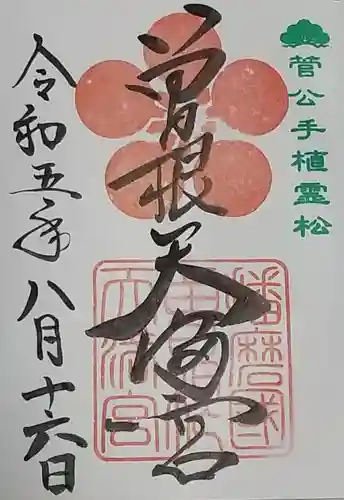 菅公手植霊松
曽根天満宮
令和五年八月十六日
播磨國
曽根
天満宮